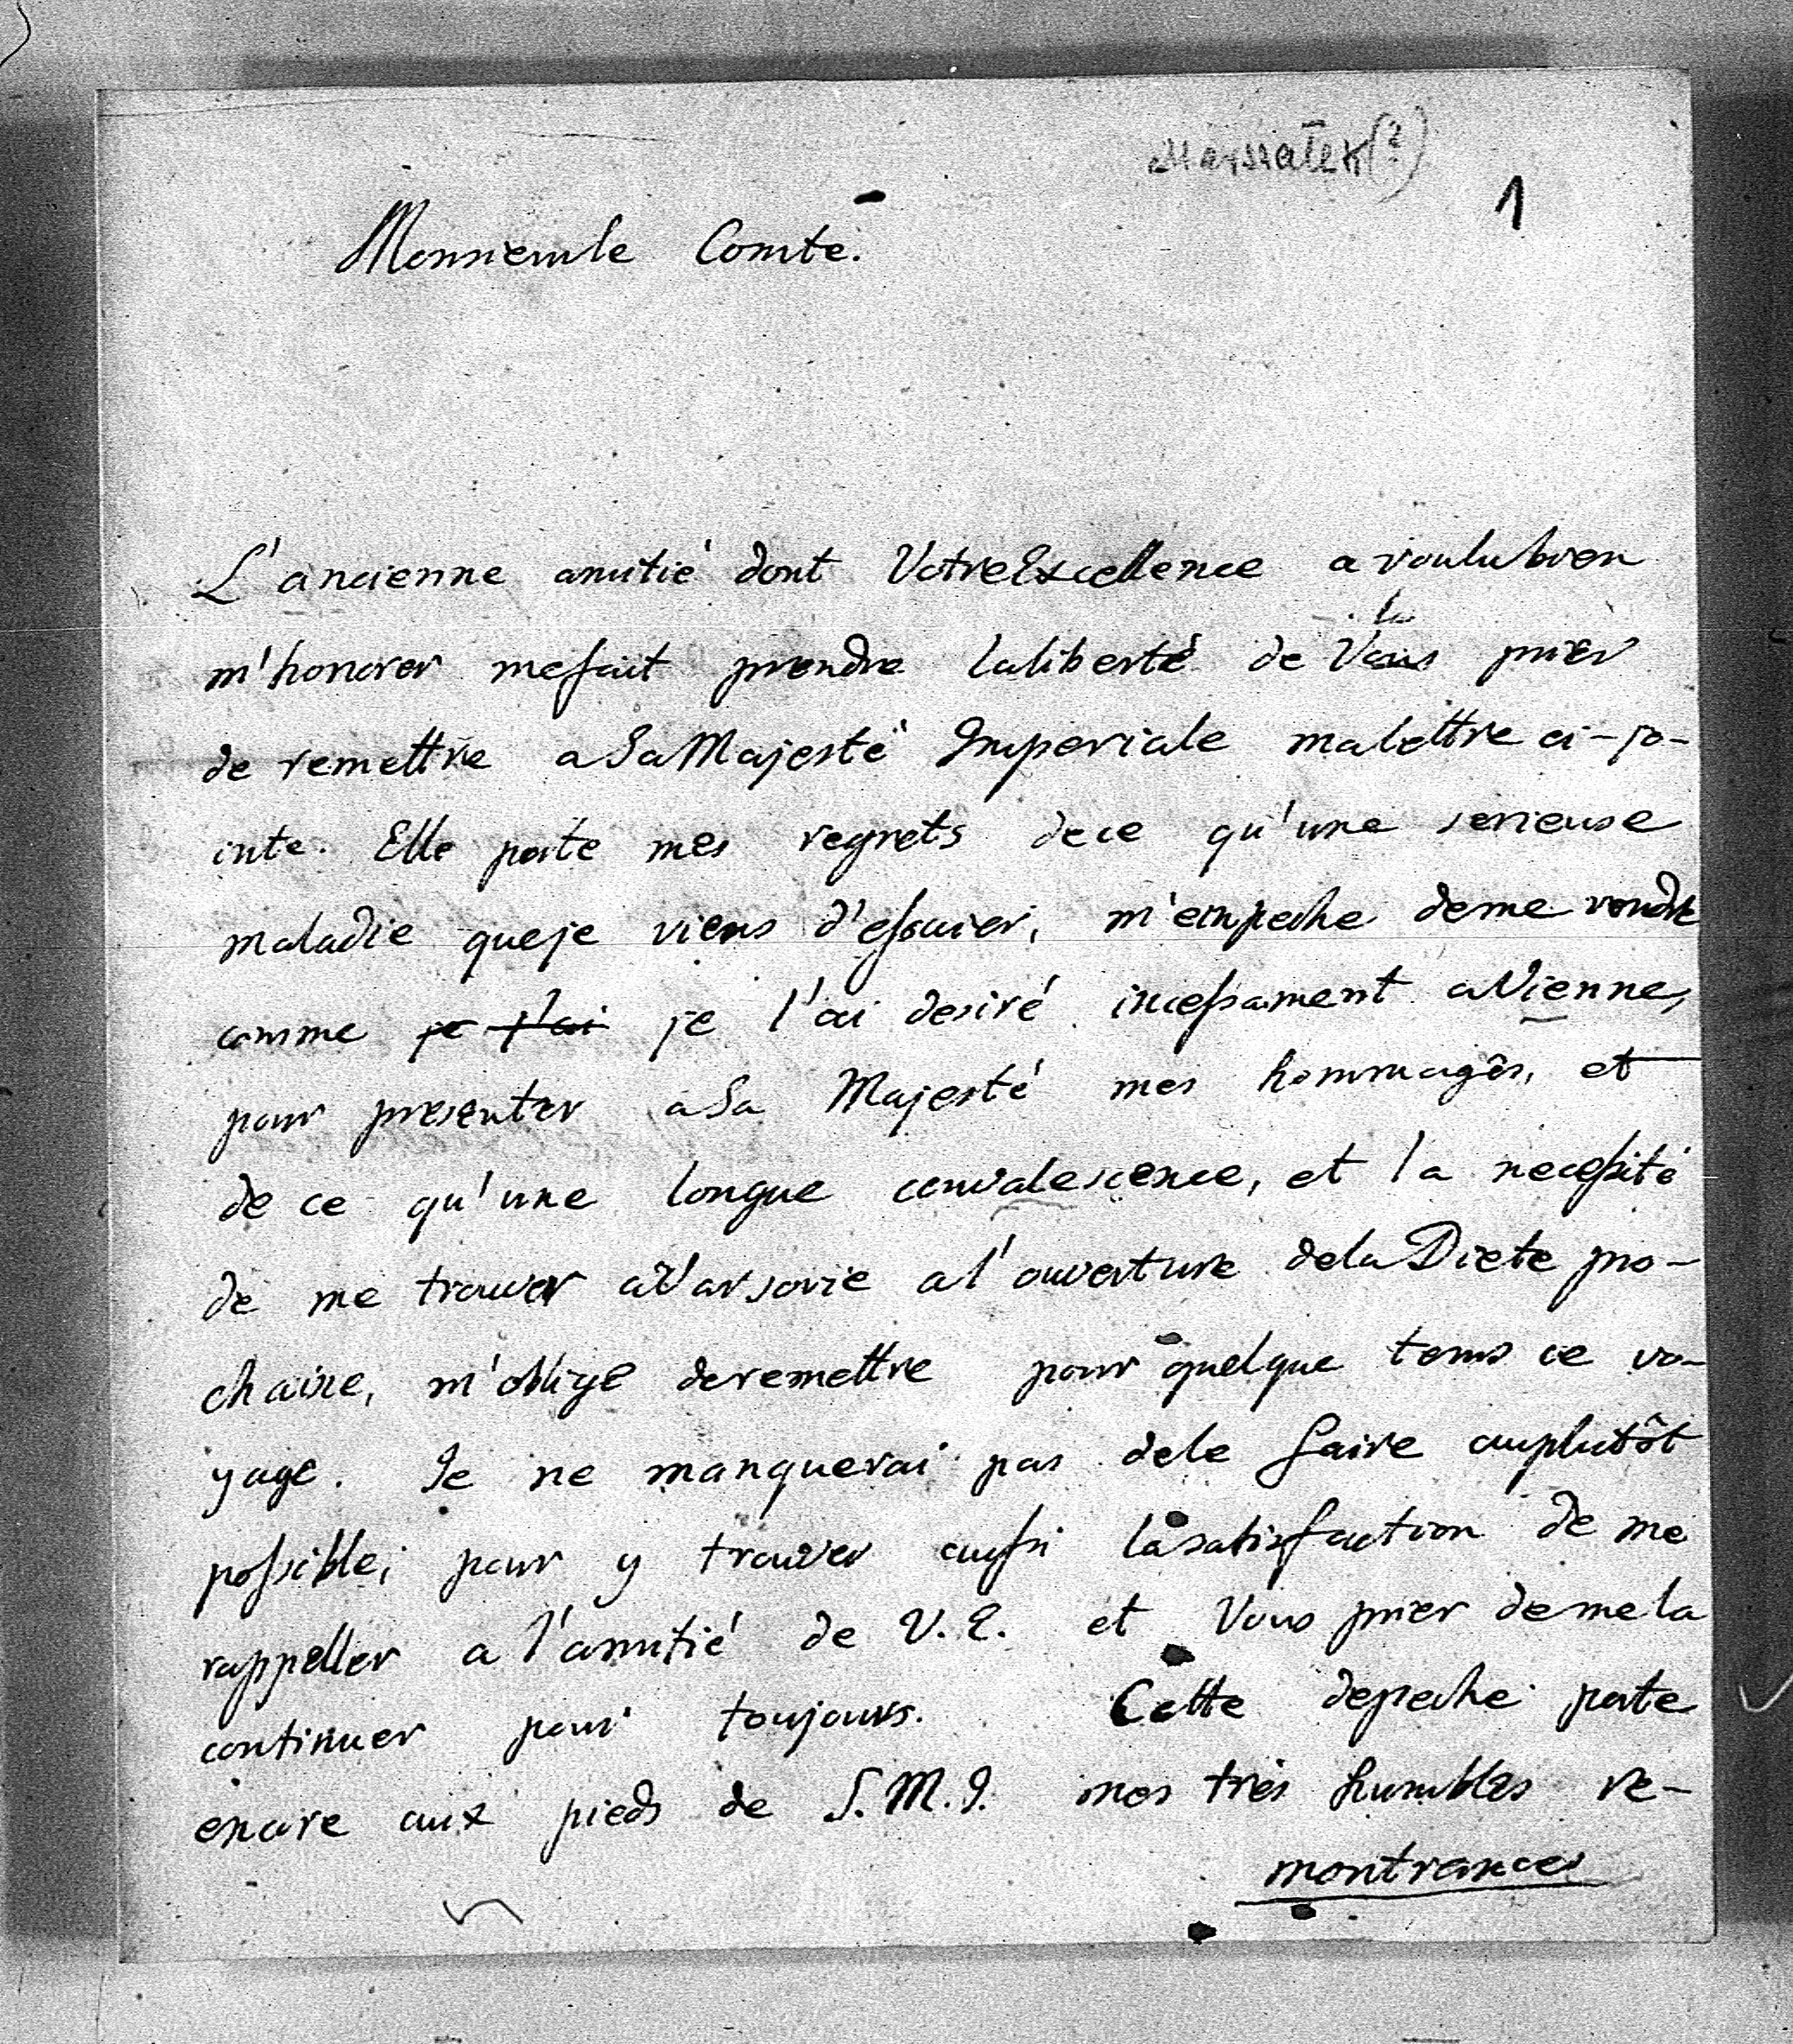 Marszałek(?)
1
Monsieur le Comte.
L'ancienne amitié dont Votre Excellence a voulu bien
la
m'honorer me fait prendre la liberté de Vous prier
de remettre a Sa Majesté Imperiale ma lettre ci-jo-
inte. Elle porte mes regrets de ce qu'une serieuse
maladie que je viens d'essuier, m'empeche de me rendre
comme je l'ai je l'ai desiré incessament a Vienne,
pour presenter a Sa Majesté mes hommages, et
de ce qu'une longue convalescence, et la necessité
de me trouver a Varsovie a l'ouverture de la Diete pro-
chaine, m'oblige de remettre pour quelque tems ce vo-
yage. Je ne manquerai pas de le faire au plutôt
possible, pour y trouver aussi la satisfaction de me
rappeller a l'amitié de V. E. et Vous prier de me la
continuer pour toujours. Cette depeche porte
encore aux pieds de S. M. I. mes très humbles re-
montrances